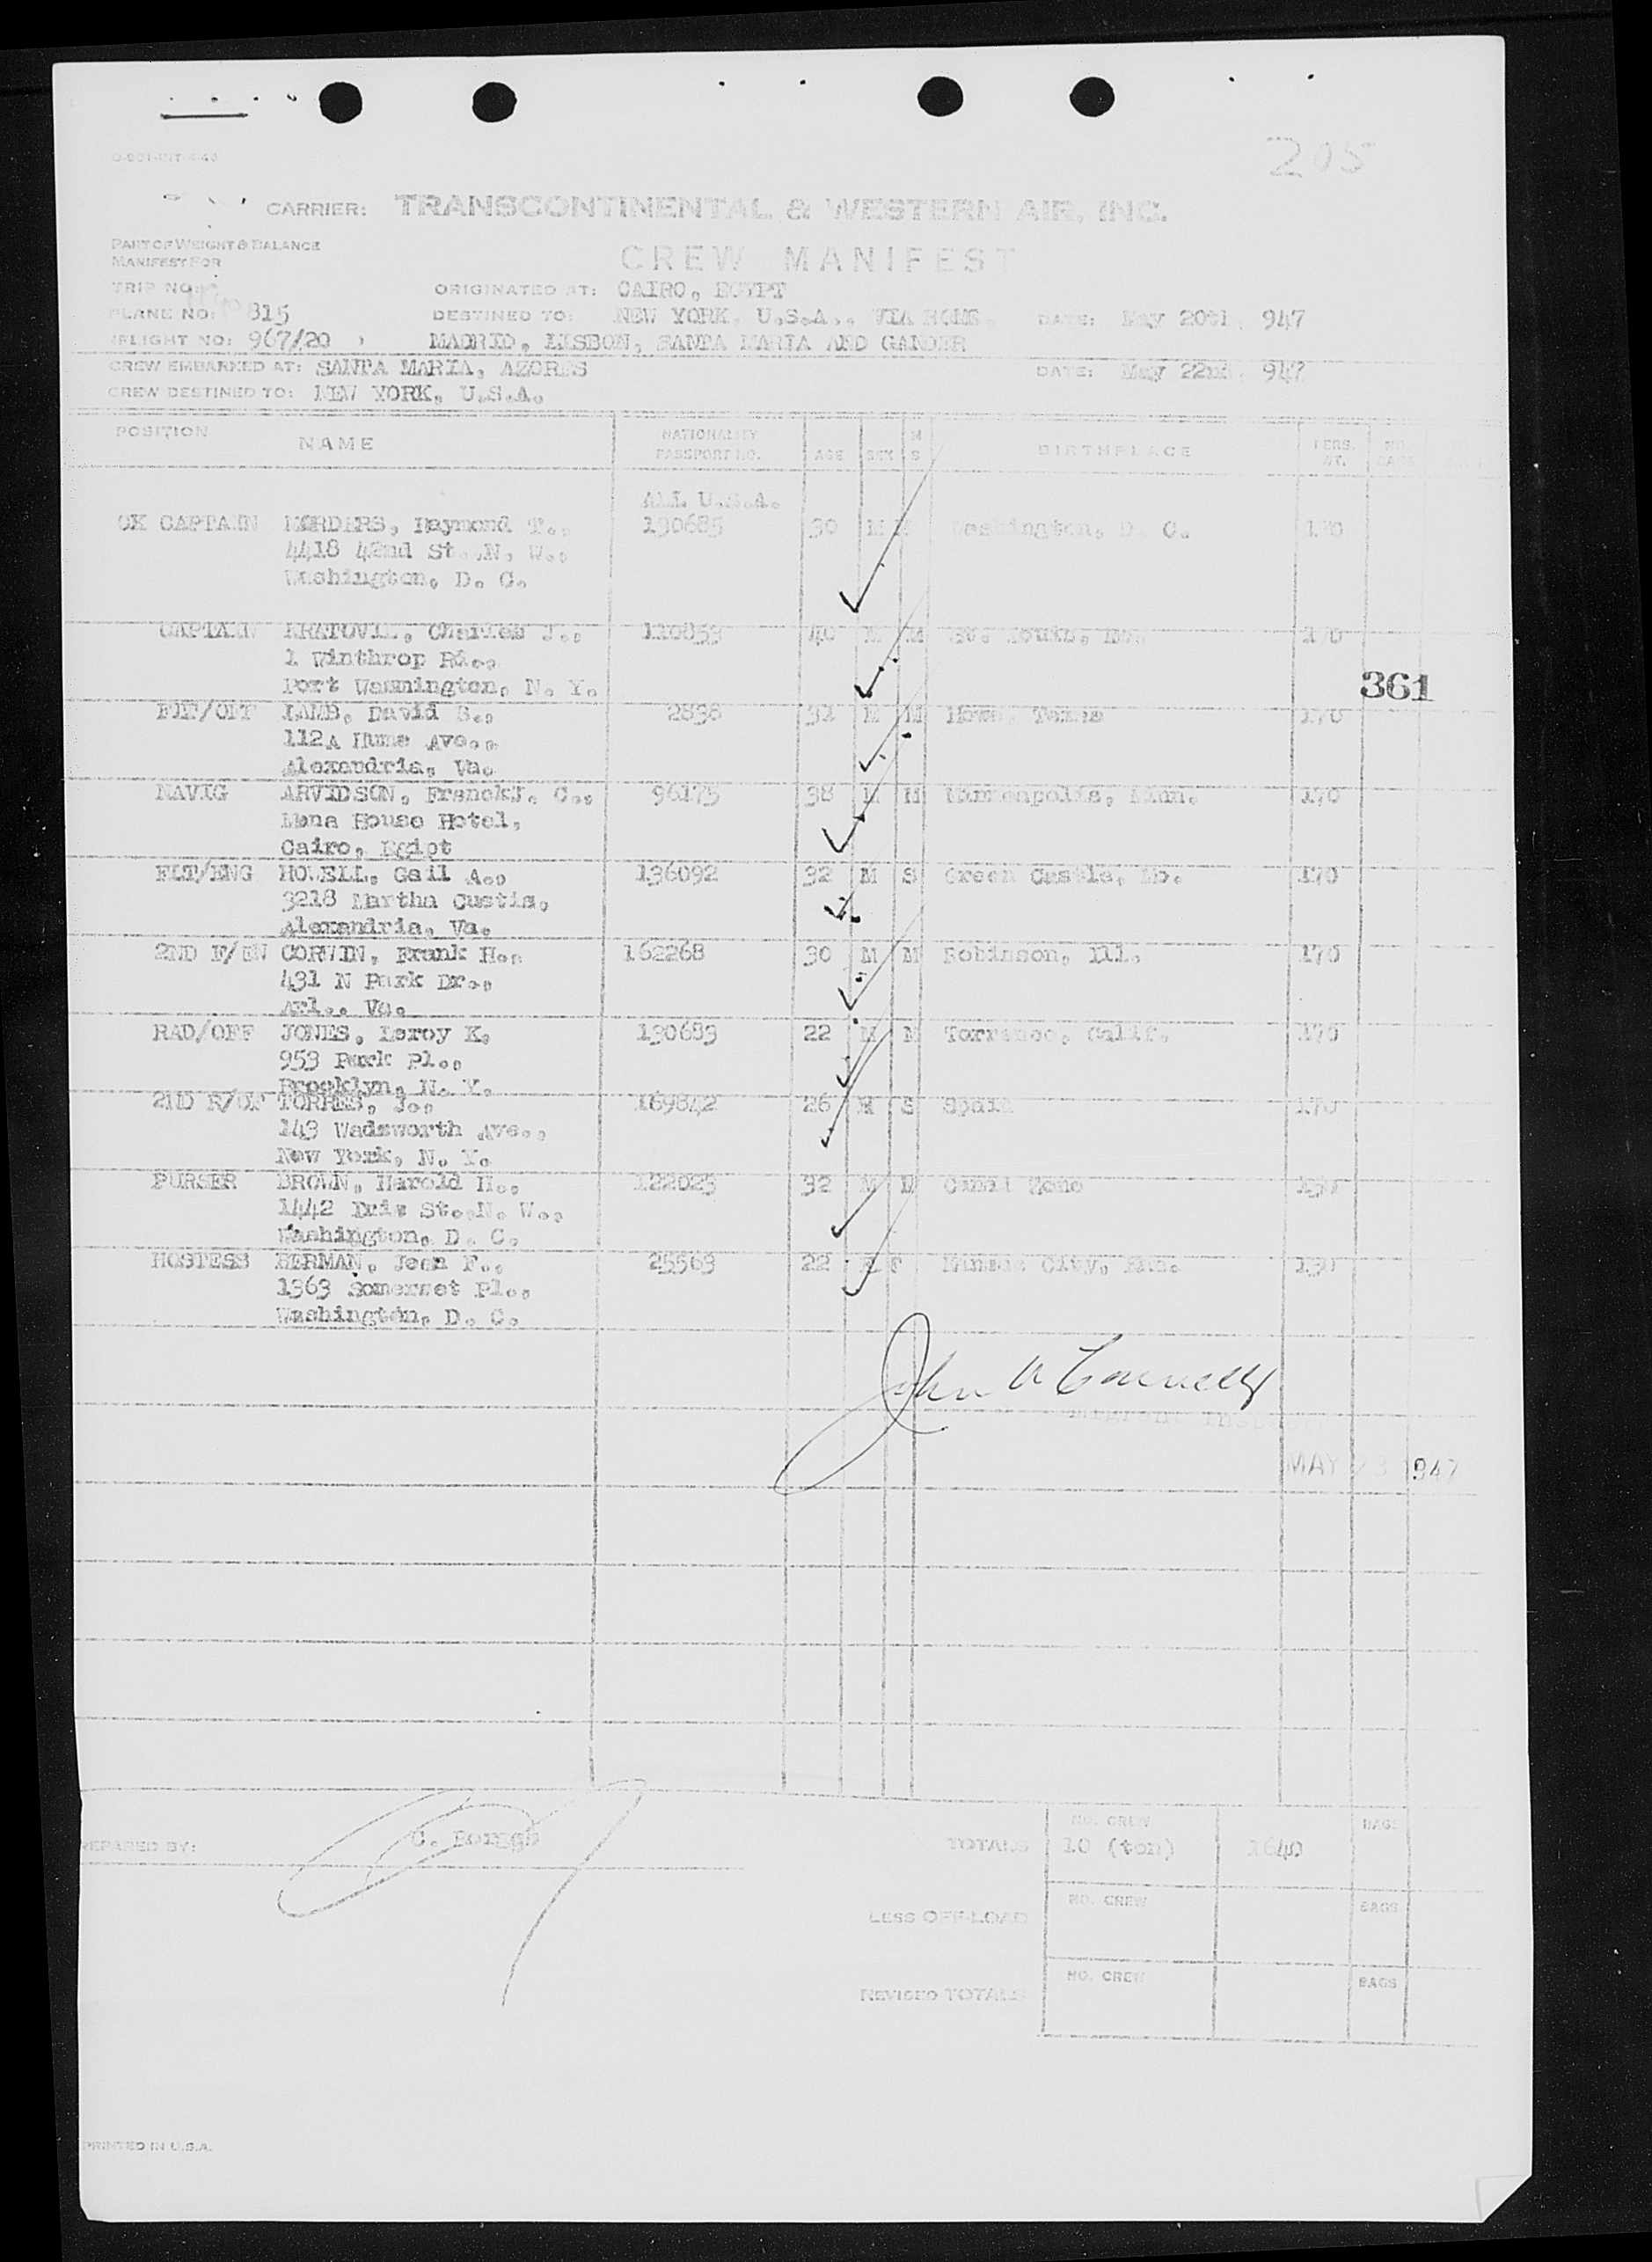 205
CARRIER: TRANSCONTINENTAL & WESTERN AIR, INC.
PART OF WEIGHT & BALANCE
MANIFEST FOR
CREW MANIFEST
TRIP NO:
ORIGINATED AT: CAIRO, EGYPT
PLANE NO: 815
DESTINED TO: NEW YORK, U.S.A., VIA ROME,
DATE: May 20th, 947
FLIGHT NO: 967/20
MADRID, LISBON, SANTA MARIA AND GANDER
CREW EMBARKED AT: SANTA MARIA, AZORES
DATE: May 22nd, 947
CREW DESTINED TO: NEW YORK, U.S.A.
POSITION NAME NATIONALITY PASSPORT NO. AGE SEX M S BIRTHPLACE PERS. WT.
ALL U.S.A.
CK CAPTAIN Raymond T., 190685 30 M Washington, D. C. 170
4418 42nd St. N. W.,
Washington, D. C.
CAPTAIN KRATOVIL, Charles J., 110853 40 M M St. Louis, Mo. 170
1 Winthrop Rd.,
Port Washington, N. Y.
361
FLT/OFF LAMB, David S., 2838 32 M M Howe, Texas 170
112A Hume Ave.,
Alexandria, Va.
NAVIG ARVIDSON, FranckJ. C., 96175 38 M M Minneapolis, Minn. 170
Mena House Hotel,
Cairo, Egipt
FLT/ENG HOWELL, Gail A., 136092 32 M S Green Castle, Mo. 170
3218 Martha Custis,
Alexandria, Va.
2ND F/EN CORWIN, Frank H., 162268 30 M M Robinson, Ill. 170
431 N Park Dr.,
Arl., Va.
RAD/OFF JONES, Leroy K. 130683 22 M M Torrance, Calif. 170
953 Park Pl.,
Brooklyn, N. Y.
2ND R/OF TORRES, J., 169842 26 M S Spain 170
143 Wadsworth Ave.,
New York, N. Y.
PURSER BROWN, Harold H., 122023 32 M M Canal Zone
1442 St. N. W.,
Washington, D. C.
HOSTESS BERMAN, Jean F., 25563 22 F Kansas City, 130
1363 Somerset Pl.,
Washington, D. C.
John A Connelly
MAY 23 1947
PREPARED BY:
TOTALS NO. CREW 10 (ten) 1640 BAGS
LESS OFF-LOAD NO. CREW BAGS
REVISED TOTALS NO. CREW BAGS
PRINTED IN U.S.A.